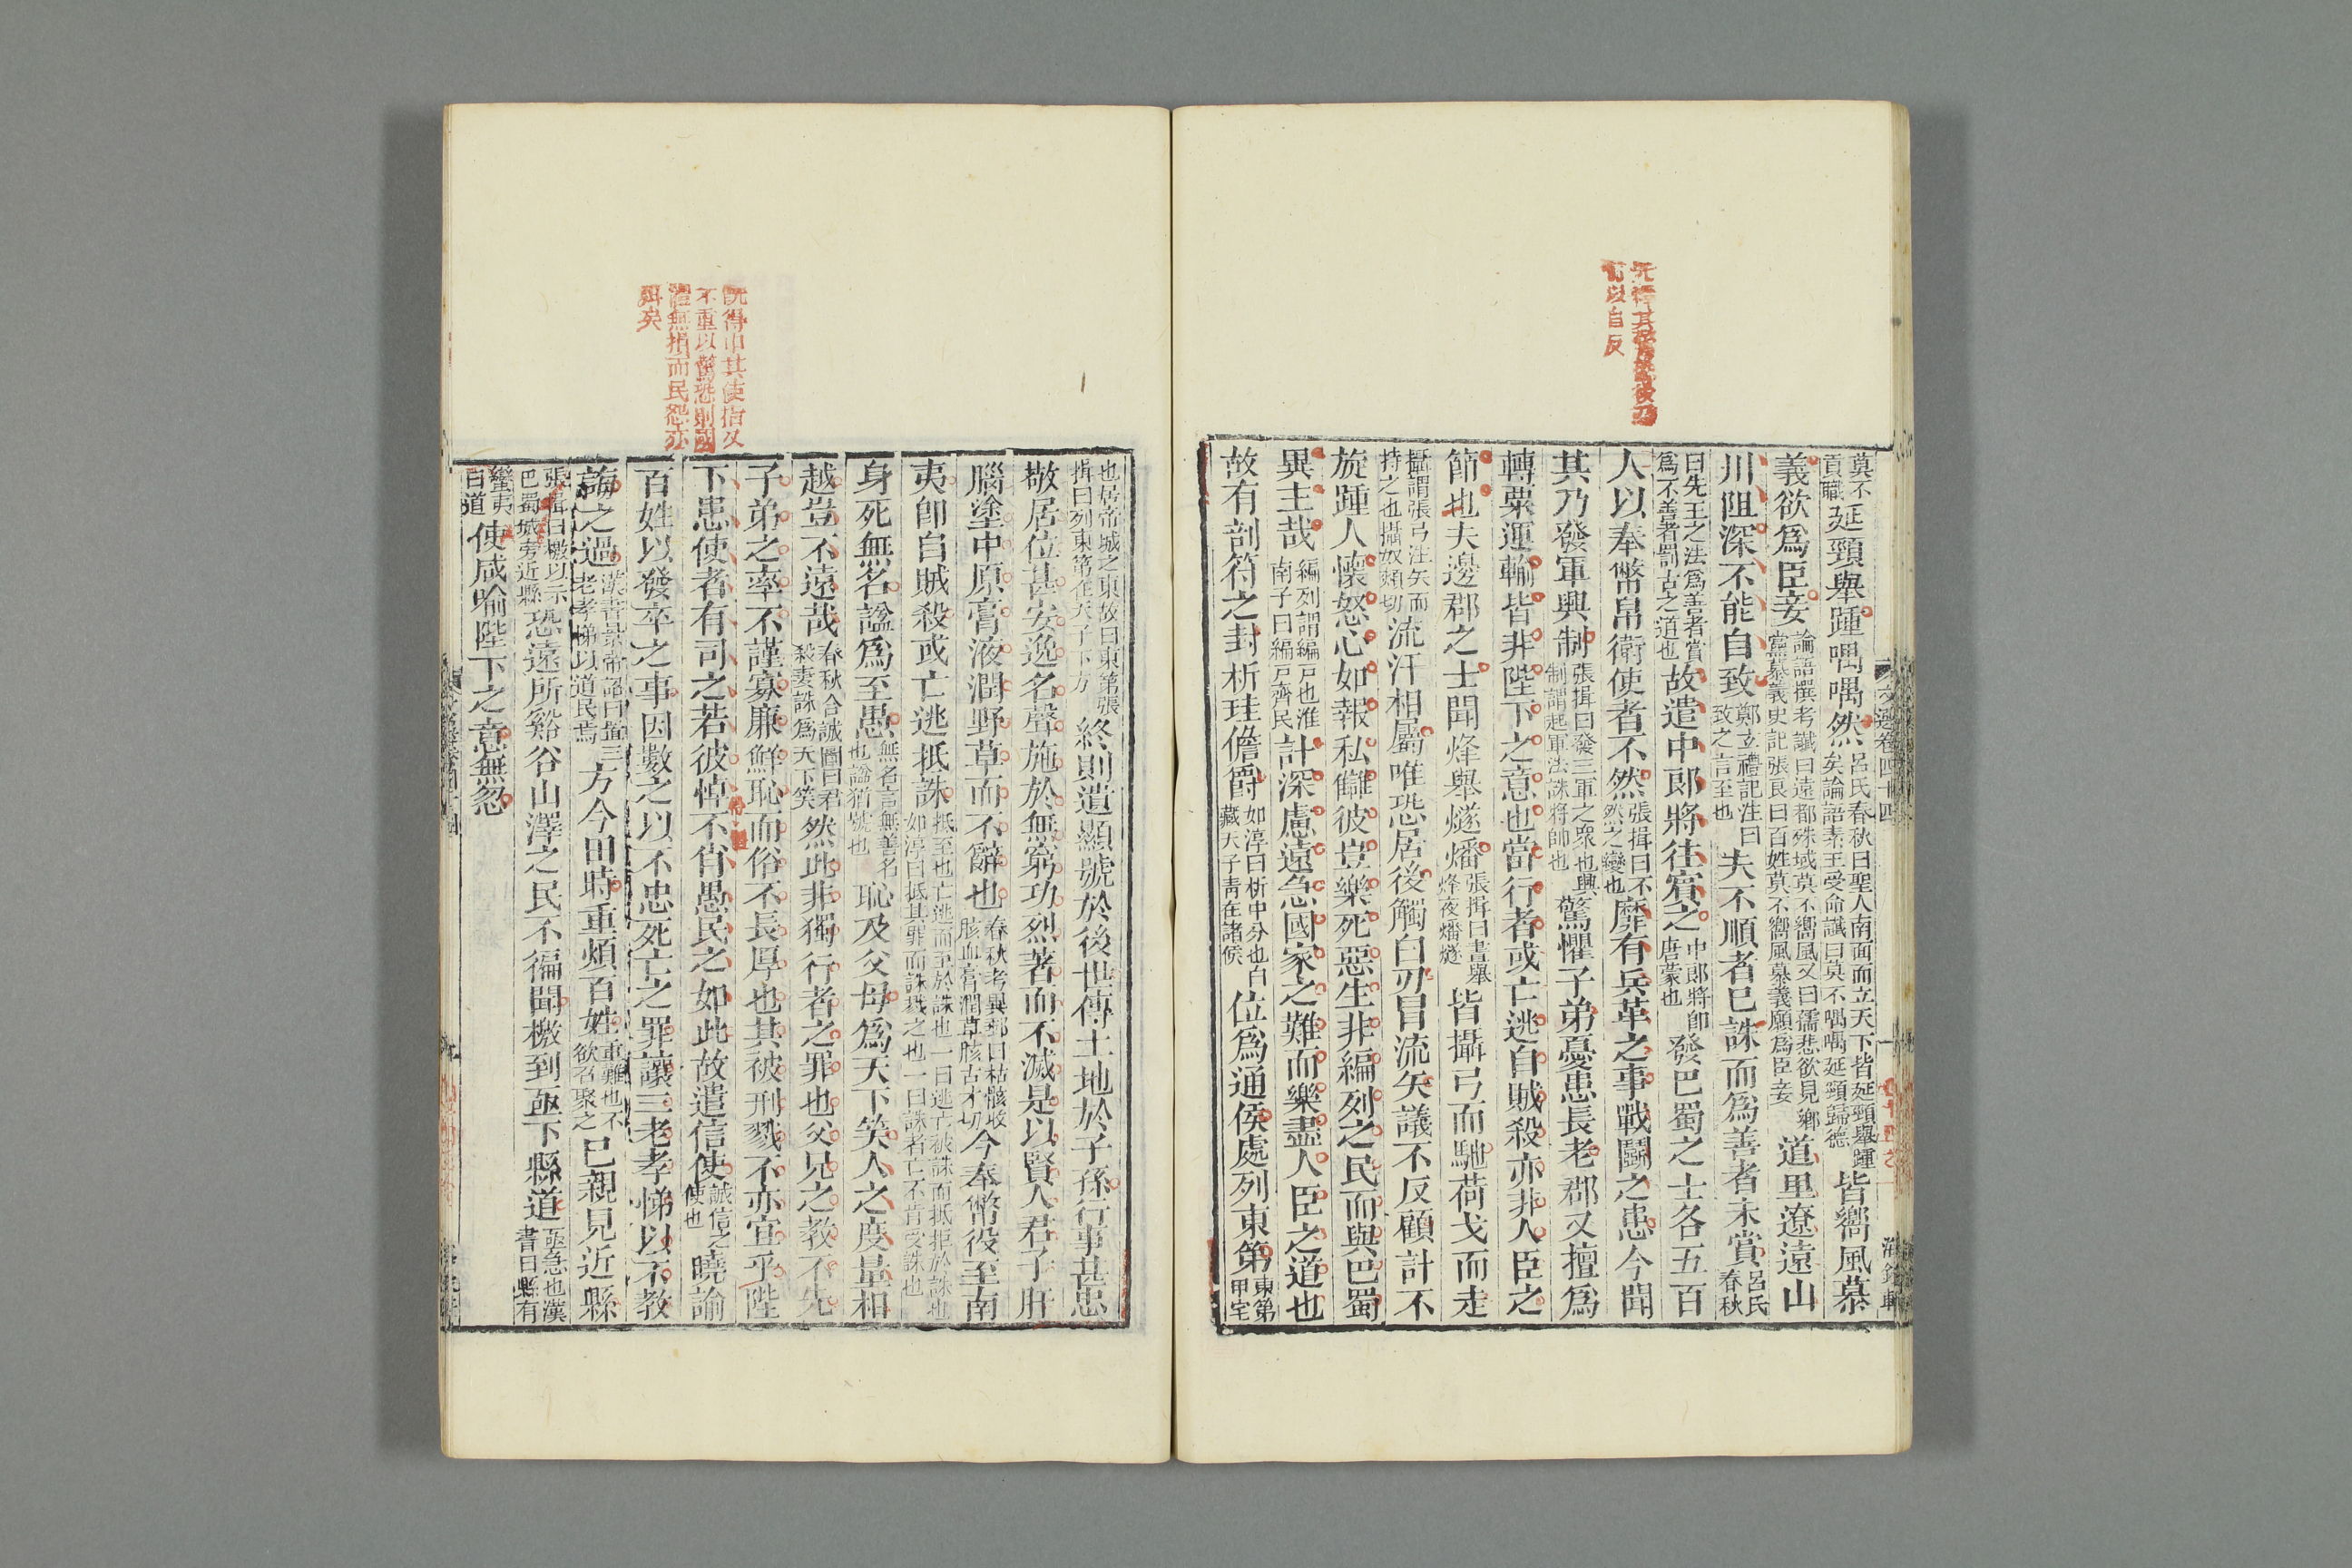 莫不貢職延頸舉踵喁喁然呂氏春秋曰聖人南面而立天下皆延頸舉踵矣論語素王受命讖曰莫不喁喁延頸歸德皆嚮風慕
義欲爲臣妾論語撰考讖曰遠都殊域莫不嚮風又曰儒悲欲見鄉黨慕義史記張良曰百姓莫不嚮風慕義願爲臣妾道里遼遠山
川阻深不能自致鄭玄禮記注曰致之言至也夫不順者已誅而爲善者未賞呂氏春秋
曰先王之法爲善者賞爲不善者罰古之道也故遣中郎將往賓之中郎將卽唐蒙也發巴蜀之士各五百
人以奉幣帛衛使者不然張揖曰不然之變也靡有兵革之事戰鬭之患今聞
其乃發軍興制張揖曰發三軍之衆也興制謂起軍法誅將帥也驚懼子弟憂患長老郡又擅爲
轉粟運輸皆非陛下之意也當行者或亡逃自賊殺亦非人臣之
節也夫邊郡之士聞烽舉燧燔張揖曰晝舉烽夜燔燧皆攝弓而馳荷戈而走
攝謂張弓注矢而持之也攝奴頰切流汗相屬唯恐居後觸白刃冒流矢議不反顧計不
旋踵人懷怒心如報私讎彼豈樂死惡生非編列之民而與巴蜀
異主哉編列謂編戶也淮南子曰編戶齊民計深慮遠急國家之難而樂盡人臣之道也
故有剖符之封析珪儋爵如淳曰析中分也白藏天子靑在諸侯位爲通侯處列東第東第甲宅
也居帝城之東故曰東第張揖曰列東第在天子下方終則遺顯號於後世傳土地於子孫行事甚忠
敬居位甚安逸名聲施於無窮功烈著而不滅是以賢人君子肝
腦塗中原膏液潤野草而不辭也春秋考異郵曰枯骸收胲血膏潤草胲古才切今奉幣役至南
夷卽自賊殺或亡逃抵誅抵至也亡逃而至於誅也一曰逃亡被誅而抵拒於誅也如淳曰抵其罪而誅戮之也一曰誅者亡不肯受誅也
身死無名諡爲至愚無名言無善名也諡猶號也恥及父母爲天下笑人之度量相
越豈不遠哉春秋合誠圖曰君殺妻誅爲天下笑然此非獨行者之罪也父兄之教不先
子弟之率不謹寡廉鮮恥而俗不長厚也其被刑戮不亦宜乎陛
下患使者有司之若彼悼不肖愚民之如此故遣信使誠信之使也曉諭
百姓以發卒之事因數之以不忠死亡之罪讓三老孝悌以不教
誨之過漢書景帝詔曰置三老孝悌以道民焉方今田時重煩百姓重難也不欲召聚之已親見近縣
張揖曰檄以示巴蜀城旁近縣恐遠所谿谷山澤之民不徧聞檄到亟下縣道亟急也漢書曰縣有
蠻夷曰道使咸喻陛下之意無忽
既得中其使指又
不重以驚恐則國
體無損而民怨亦
弭矣